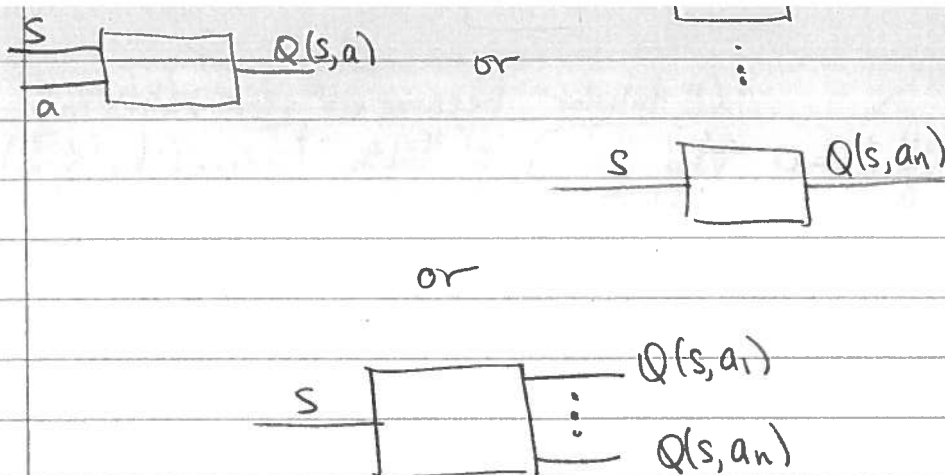 S
a
Q(s,a)
or
⋮
S
Q(s,an)
or
S
Q(s,a1)
⋮
Q(s,an)